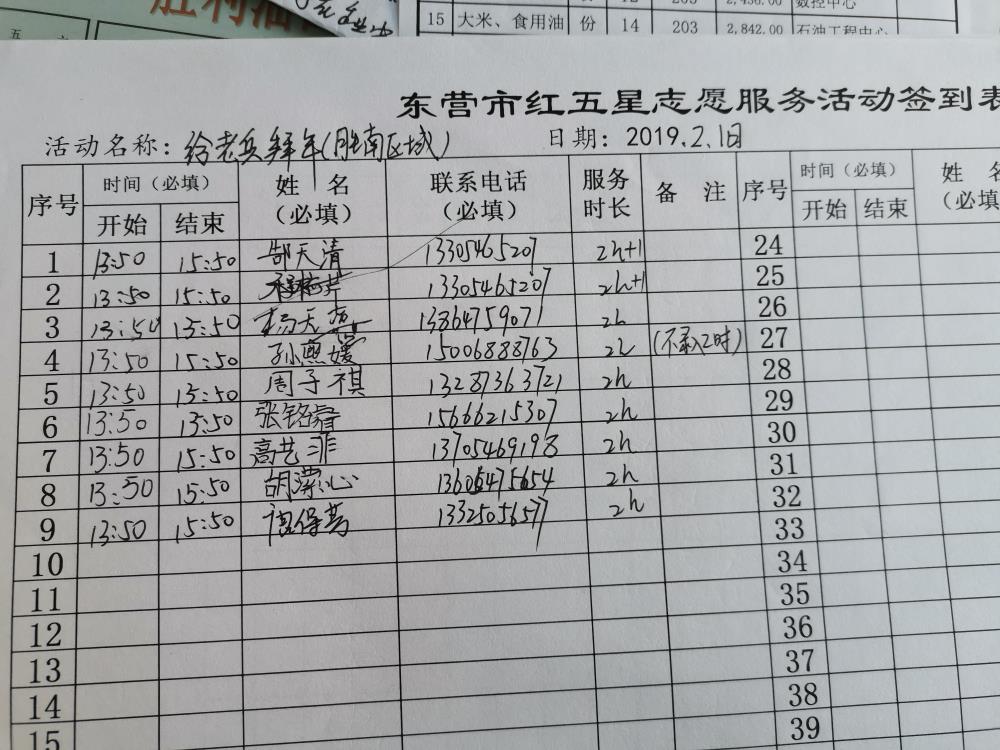 胜利油
五
15 大米、食用油 份 14 203 2,842.00 石油工程中心
203 2,436.00 数控中心
东营市红五星志愿服务活动签到表
活动名称：给老兵拜年(胜南区域) 日期：2019.2.1日
序号 时间（必填） 姓 名（必填） 联系电话（必填） 服务时长 备 注 序号 时间（必填） 姓 名（必填
开始 结束 开始 结束
1 13:50 15:50 郜天清 1330546520 2h+1 24
2 13:50 15:50 13305465207 2h+1 25
3 13:50 15:50 杨天 13864759071 2h 26
4 13:50 15:50 孙熙媛 15006888763 2h (不录入2时) 27
5 13:50 15:50 周子祺 13287363721 2h 28
6 13:50 15:50 张铭睿 15666215307 2h 29
7 13:50 15:50 高艺菲 13705469198 2h 30
8 13:50 15:50 胡潆心 13605475654 2h 31
9 13:50 15:50 保 1332505657 2h 32
33
10 34
11 35
12 36
13 37
14 38
15 39